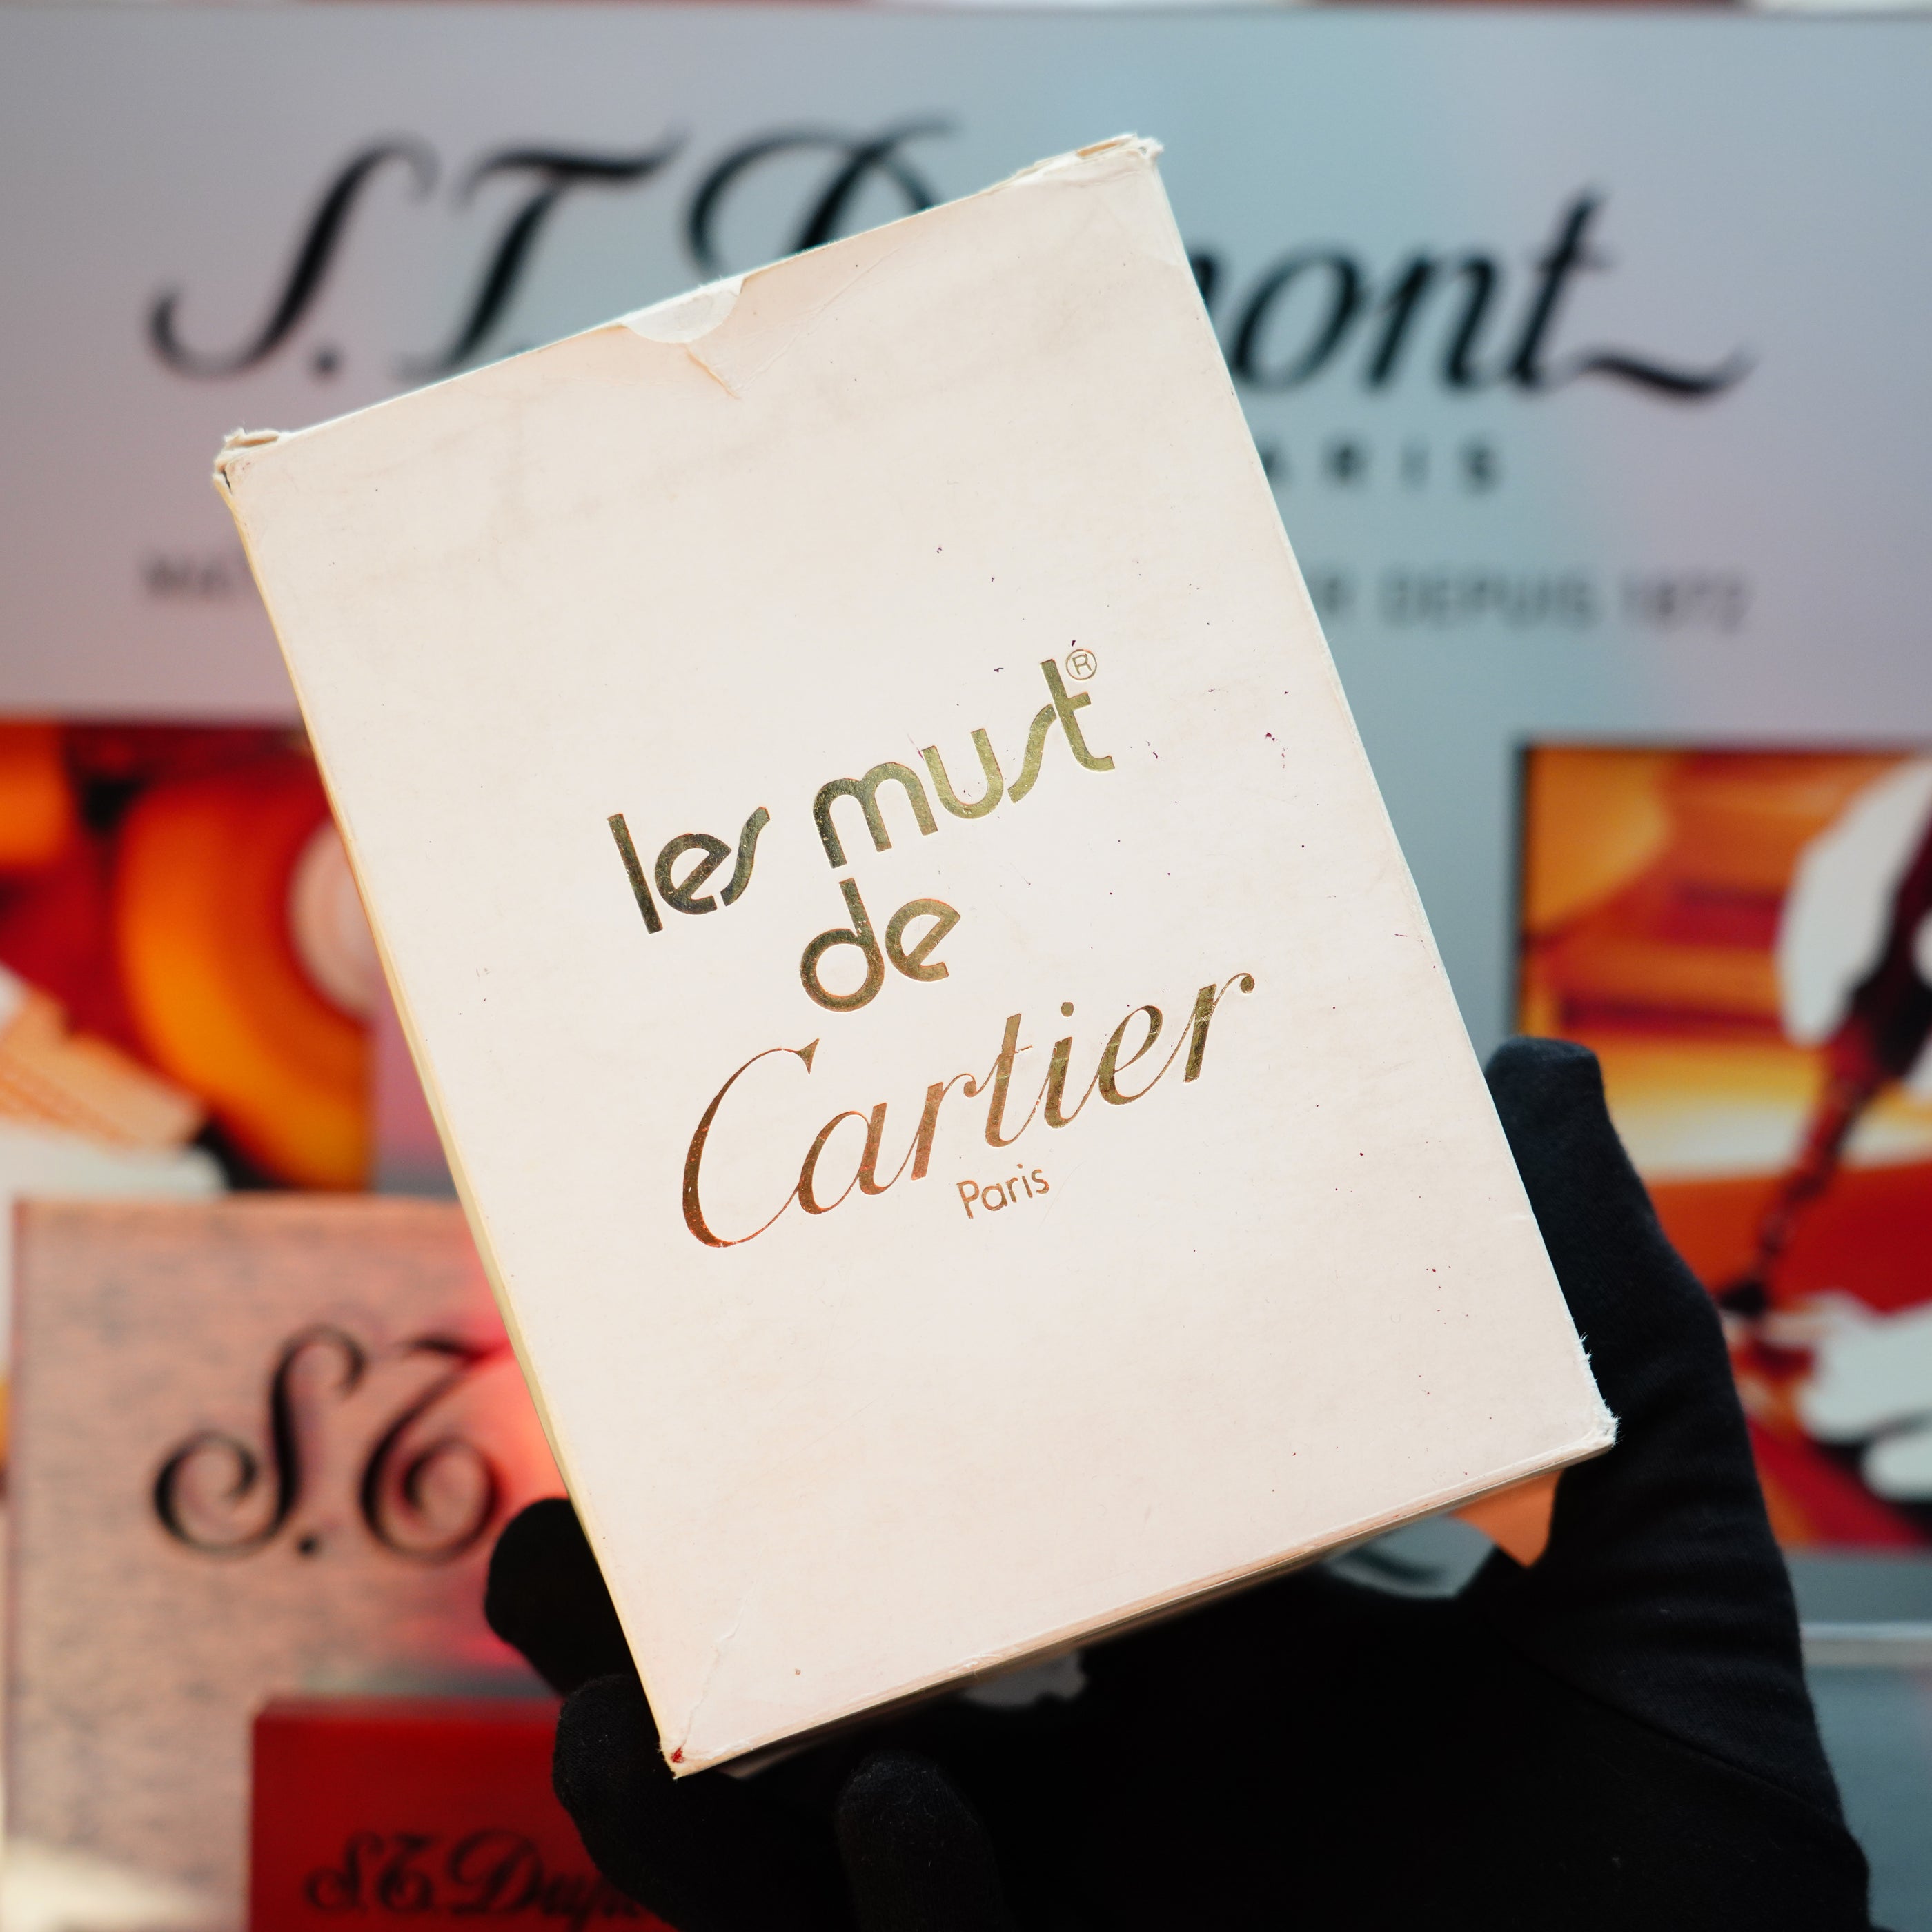 S.T. D ont
ARIS
R DEPUIS 1872
les must®
de
Cartier
Paris
S.T.
S.T. Dupo